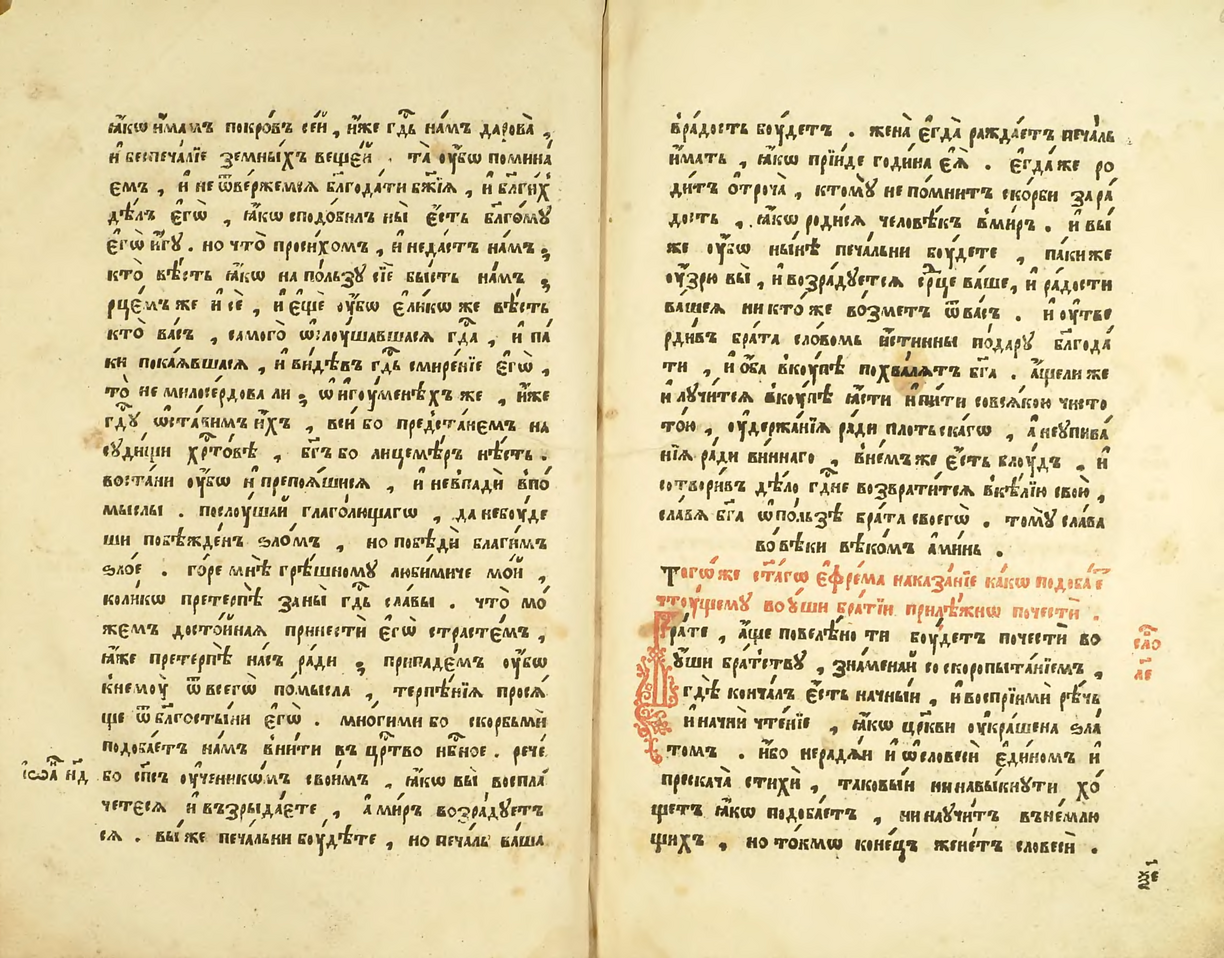 ꙗ҆́кѡ и҆́мамъ покро́въ се́й, и҆́же гд҇ь на́мъ дарова̀,
и҆ беспеча́лїе земны́хъ веще́й. та̀ ᲂу҆́бѡ помина́
емъ, и҆ не ѿве́ржемсѧ бл҃года́ти бж҃їѧ, и҆ бл҃ги́хъ
дѣ́лъ є҆гѡ̀, ꙗ҆́кѡ сподо́билъ ны̀ є҆́сть бл҃го́мꙋ
є҆гѡ̀ и҆́гꙋ. но что̀ проси́хомъ, и҆ неда́стъ на́мъ;
кто̀ вѣ́сть ꙗ҆́кѡ на по́льзꙋ сїѐ бы́сть на́мъ;
рце́мъ же и҆ сѐ, и҆ є҆щѐ ᲂу҆́бѡ є҆ли́кѡ же вѣ́сть
кто̀ ва́съ, самого̀ ѡ҆слꙋ́шавшасѧ гд҇а, и҆ па́
ки пока́ѧвшасѧ, и҆ ви́дѣвъ гд҇ь смире́нїе є҆гѡ̀,
то̀ не милосе́рдова ли; ѡ҆ и҆гꙋ́менѣхъ же, и҆́же
гд҇ꙋ ѡ҆ста́вимъ и҆́хъ, вси́ бо предста́немъ на
сꙋди́щи хр҇то́вѣ, бг҃ъ бо лицемѣ́ръ нѣ́сть.
воста́ни ᲂу҆́бѡ и҆ препоѧ́шисѧ, и҆ невпадѝ впо́
мыслы. послꙋ́шай глаго́лющагѡ, да небꙋ́де
ши побѣжде́нъ ѕло́мъ, но побѣдѝ благи́мъ
ѕло́е. го́ре мнѣ̀ грѣ́шномꙋ люби́миче мо́й,
коли́кѡ претерпѣ̀ за ны̀ гд҇ь сла́вы. что̀ мо́
жемъ досто́йнаѧ принестѝ є҆гѡ̀ страсте́мъ,
ꙗ҆́же претерпѣ̀ на́съ ра́ди; припаде́мъ ᲂу҆́бѡ
кнемꙋ̀ ѿ всегѡ̀ по́мысла, терпѣ́нїѧ просѧ́
ще ѿ бл҃госты́ни є҆гѡ̀. мно́гими бо ско́рбьми
подоба́етъ на́мъ вни́ти въ цр҇тво нб҇ное. рече́
і҆ѡа҃ н҃д
бо сп҃съ ᲂу҆ченикѡ́мъ свои́мъ, ꙗ҆́кѡ вы̀ воспла́
четесѧ и҆ възрыда́ете, а҆ ми́ръ возра́дꙋетъ
сѧ. вы́ же печа́льни бꙋ́дѣте, но печа́ль ва́ша
вра́дость бꙋ́детъ. жена̀ є҆гда̀ ражда́етъ печа́ль
и҆́мать, ꙗ҆́кѡ прїи́де годи́на є҆ѧ̀. є҆гда́ же ро
ди́тъ ѻ҆троча̀, ктомꙋ̀ непо́мнитъ ско́рби зара́
дость, ꙗ҆́кѡ роди́сѧ человѣ́къ вми́ръ. и҆ вы́
же ᲂу҆́бѡ ны́нѣ печа́льни бꙋ́дете, па́ки же
ᲂу҆́зрю вы̀, и҆ возра́дꙋетсѧ ср҃це ва́ше, и҆ ра́дости
ва́шеѧ никто́ же во́зметъ ѿ ва́съ. и҆ ᲂу҆тве
рди́въ бра́та сло́вомь и҆́стинны пода́рꙋ бл҃года́
ти, и҆ ѻ҆́ба вкꙋ́пѣ похва́лѧтъ бг҃а. а҆́щели же
и҆ лꙋчи́тсѧ вкꙋ́пѣ ꙗ҆́сти и҆ пи́ти совсѧ́кою чисто
то́ю, ᲂу҆держа́нїѧ ра́ди плотьска́гѡ, а҆ неꙋпива́
нїѧ ра́ди ви́ннаго, вне́мъ же є҆́сть блꙋ́дъ. и҆
сотвори́въ дѣ́ло гд҇не возврати́тсѧ вке́лїю свою̀,
сла́вѧ бг҃а ѡ҆ по́льзѣ бра́та своегѡ̀. томꙋ̀ сла́ва
во́ вѣки вѣ́комъ а҆ми́нь.
Того́ѡ же ст҃а́гѡ є҆фре́ма наказа́нїе ка́кѡ подоба́е
тчтꙋ́щемꙋ во ᲂу҆́ши бра́тїи прилѣ́жнѡ почестѝ.
Бра́те, а҆́ще повелѣ́но ти бꙋ́детъ почестѝ во
ᲂу҆́ши бра́тствꙋ, зна́менай соскоропыта́нїемъ,
гдѣ̀ конча́лъ є҆́сть начны́й, и҆ воспрїимѝ рѣ́чь
и҆ начнѝ чте́нїе, ꙗ҆́кѡ цр҃кви ᲂу҆кра́шена ѕла́
томъ. и҆́бо нерадѧ́й и҆ ѡ҆ словесѝ є҆ди́номъ и҆
прескача́ѧ стихѝ, таковы́й нинавы́кнꙋти хо́
щетъ ꙗ҆́кѡ подоба́етъ, нинаꙋчи́тъ вънемлю
щихъ, но то́кмѡ коне́цъ жене́тъ словесѝ.
сло́
л҃е